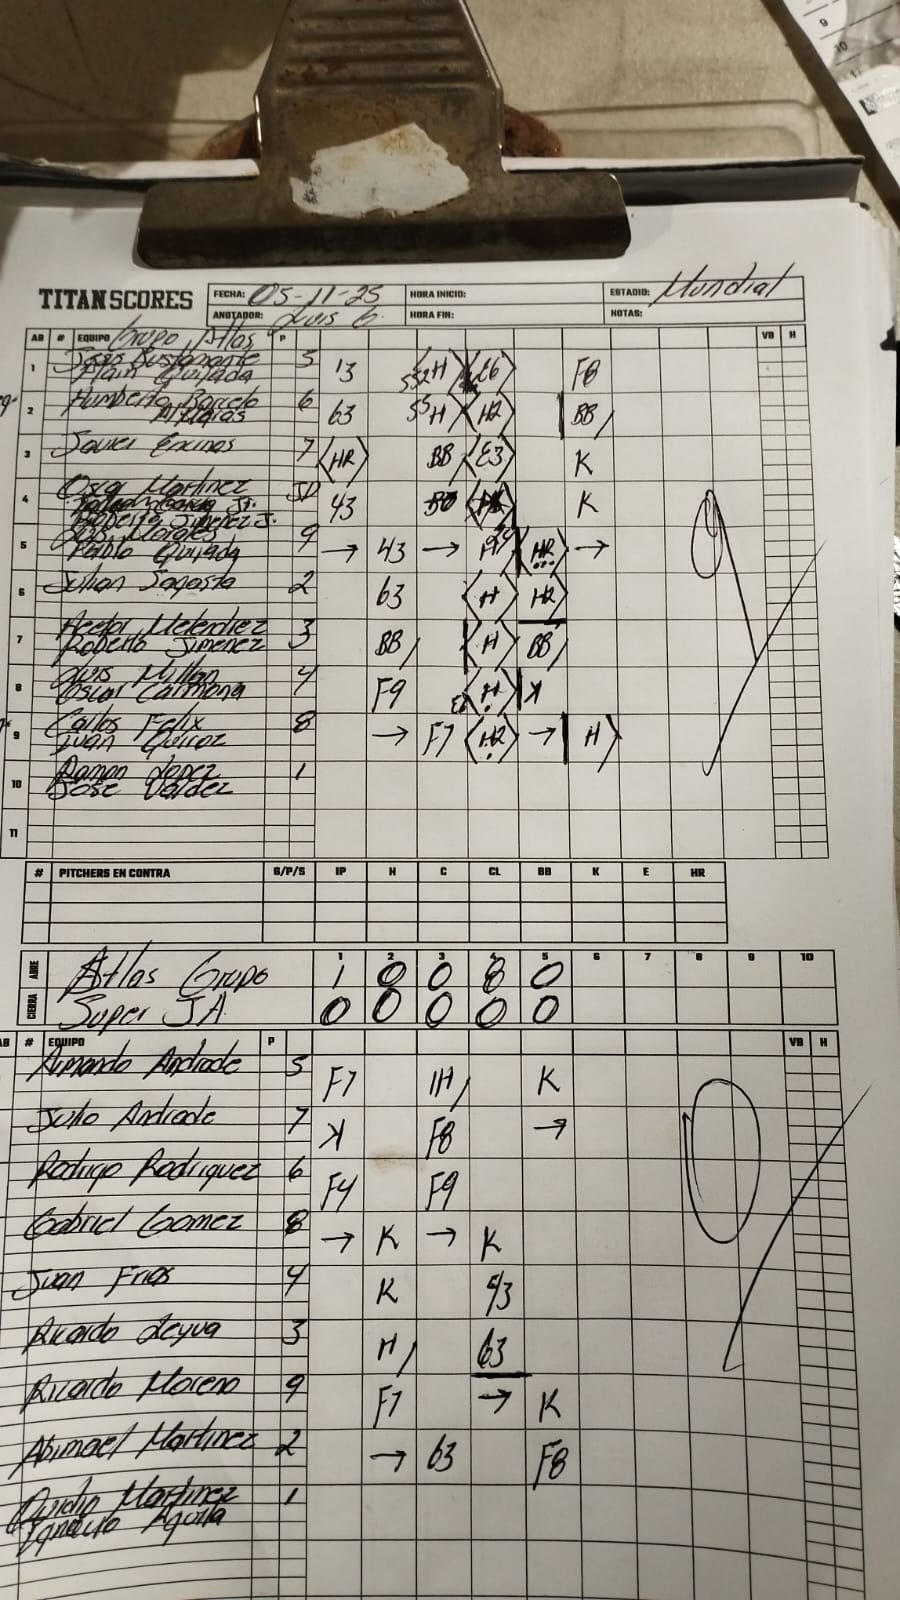 TITANSCORES
FECHA: 05-11-25 HORA INICIO: ESTADIO: Mundial
ANOTADOR: Luis G. HORA FIN: NOTAS:
AB # EQUIPO Grupo Atlas P VB H
1 Jesus Bustamante 5 13 H E6 F8
Alain Quijada
2 Humberto Barcelo 6 63 H HR BB
3 Javier Encinas 7 HR BB E3 K
4 Oscar Martinez 43 K
Roberto Jimenez J.
5 Luis Morales 9 → 43 → H HR →
Pablo Quijada
6 Julian Sagasta 2 63 H HR
7 Hector Melendrez 3 BB H BB
Roberto Jimenez
8 Luis Millan 4 F9 H K
Oscar Carmona
9 Carlos Felix 8 → F7 HR → H
Juan Quiroz
10 Ramon Lopez 1
Jose Valdez
11
9
# PITCHERS EN CONTRA G/P/S IP H C CL BB K E HR
1 2 3 4 5 6 7 8 9 10
ABRE Atlas Grupo 1 0 0 8 0
CIERRA Super JA. 0 0 0 0 0
AB # EQUIPO P VB H
Armando Andrade 5 F7 1H K
Julio Andrade 7 K F8 →
Rodrigo Rodriguez 6 F4 F9
Gabriel Gomez 8 → K → K
Juan Frias 4 K 43
Ricardo Leyva 3 H 63
Ricardo Moreno 9 F7 → K
Abimael Martinez 2 → 63 F8
Martinez 1
Ignacio Aguila
0